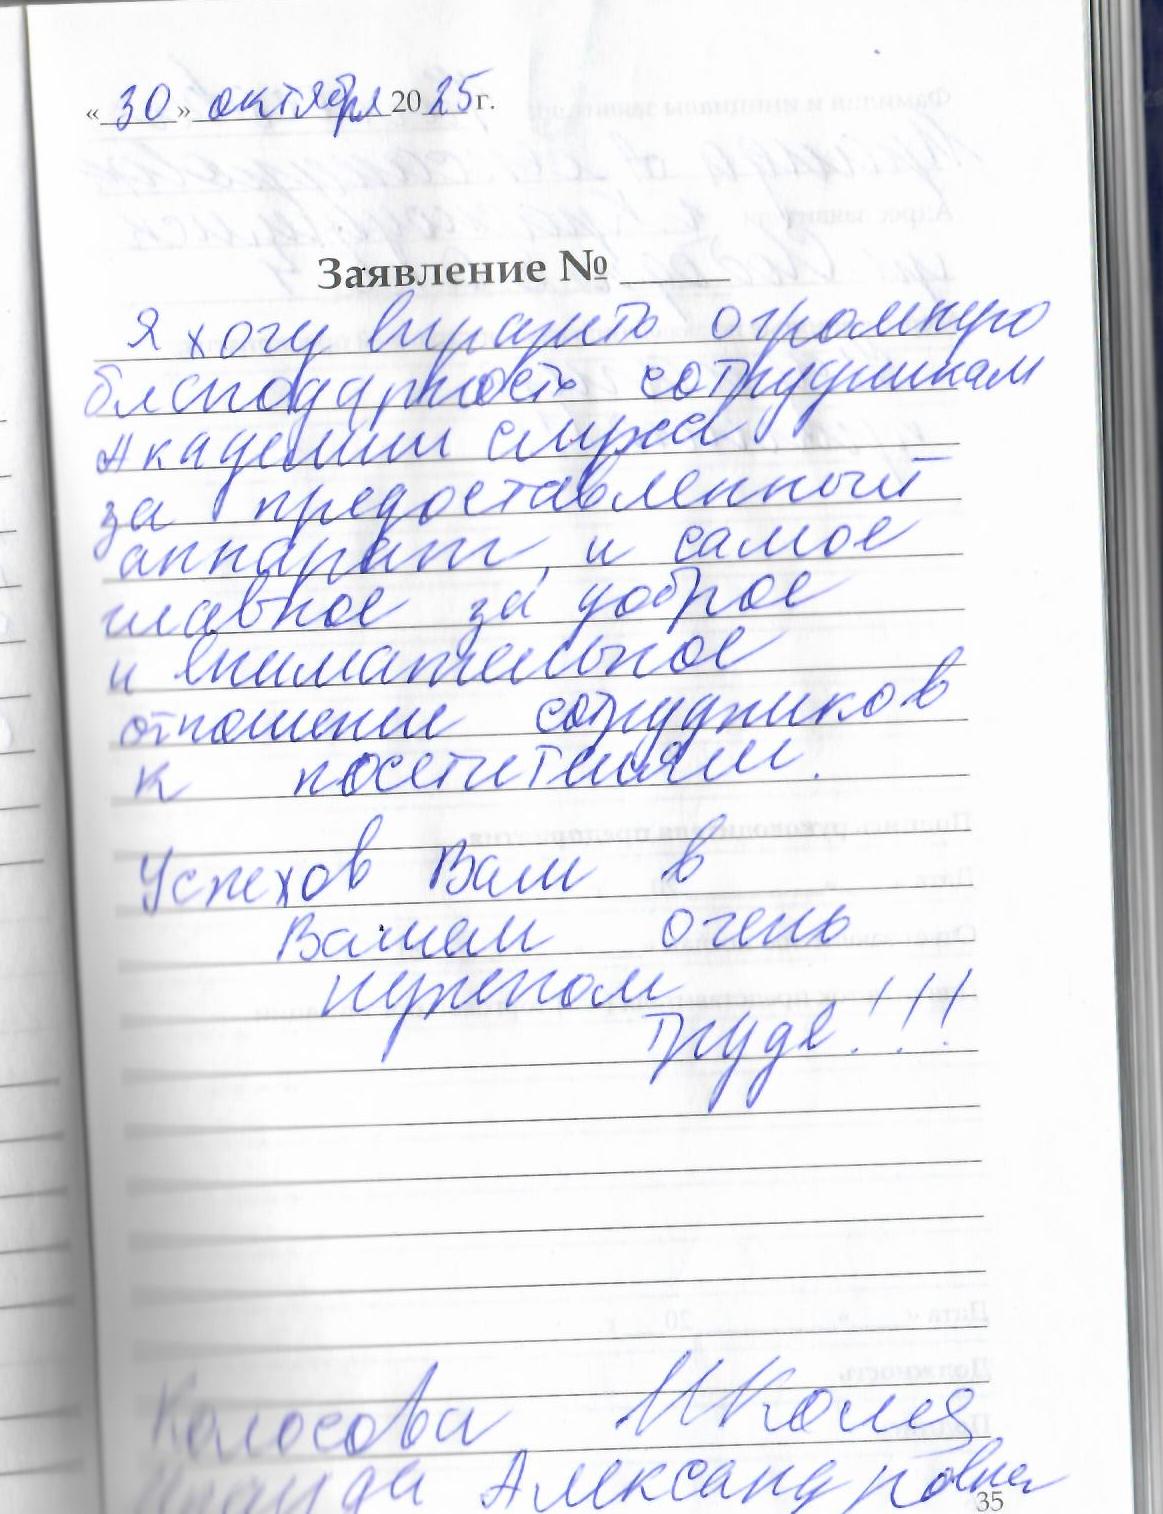 «30» октября 2025 г.
Заявление №
Я хочу выразить огромную
благодарность сотрудникам
Академии слуха
за предоставленный
аппарат, и самое
главное за доброе
и внимательное
отношение сотрудников
к посетителям.
Успехов Вам в
Вашем очень
нужном
труде!!!
Колосова
Александровна
35